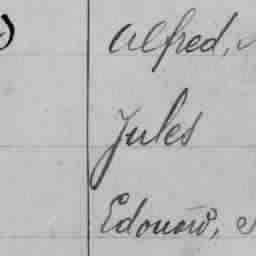 Alfred,
Jules
Edouard,